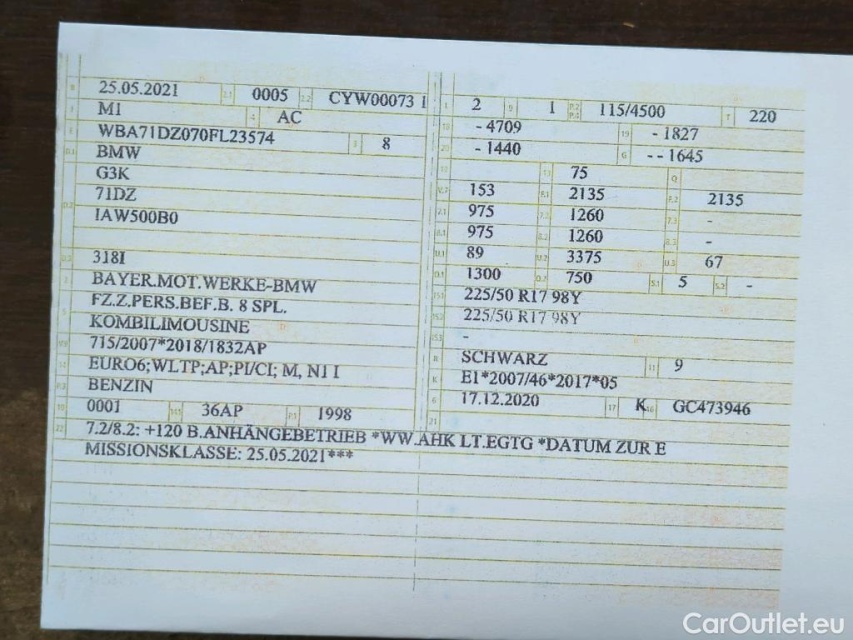 25.05.2021 0005 CYW00073 1
M1 AC
WBA71DZ070FL23574 8
BMW
G3K
71DZ
IAW500B0
318I
BAYER.MOT.WERKE-BMW
FZ.Z.PERS.BEF.B. 8 SPL.
KOMBILIMOUSINE
715/2007*2018/1832AP
EURO6;WLTP;AP;PI/CI; M, N1 I
BENZIN
0001 36AP 1998
2 1 115/4500 220
- 4709 - 1827
- 1440 - - 1645
75
153 2135 2135
975 1260 -
975 1260 -
89 3375 67
1300 750 5 -
225/50 R17 98Y
225/50 R17 98Y
-
SCHWARZ 9
E1*2007/46*2017*05
17.12.2020 K GC473946
7.2/8.2: +120 B.ANHÄNGEBETRIEB *WW.AHK LT.EGTG *DATUM ZUR E
MISSIONSKLASSE: 25.05.2021***
CarOutlet.eu